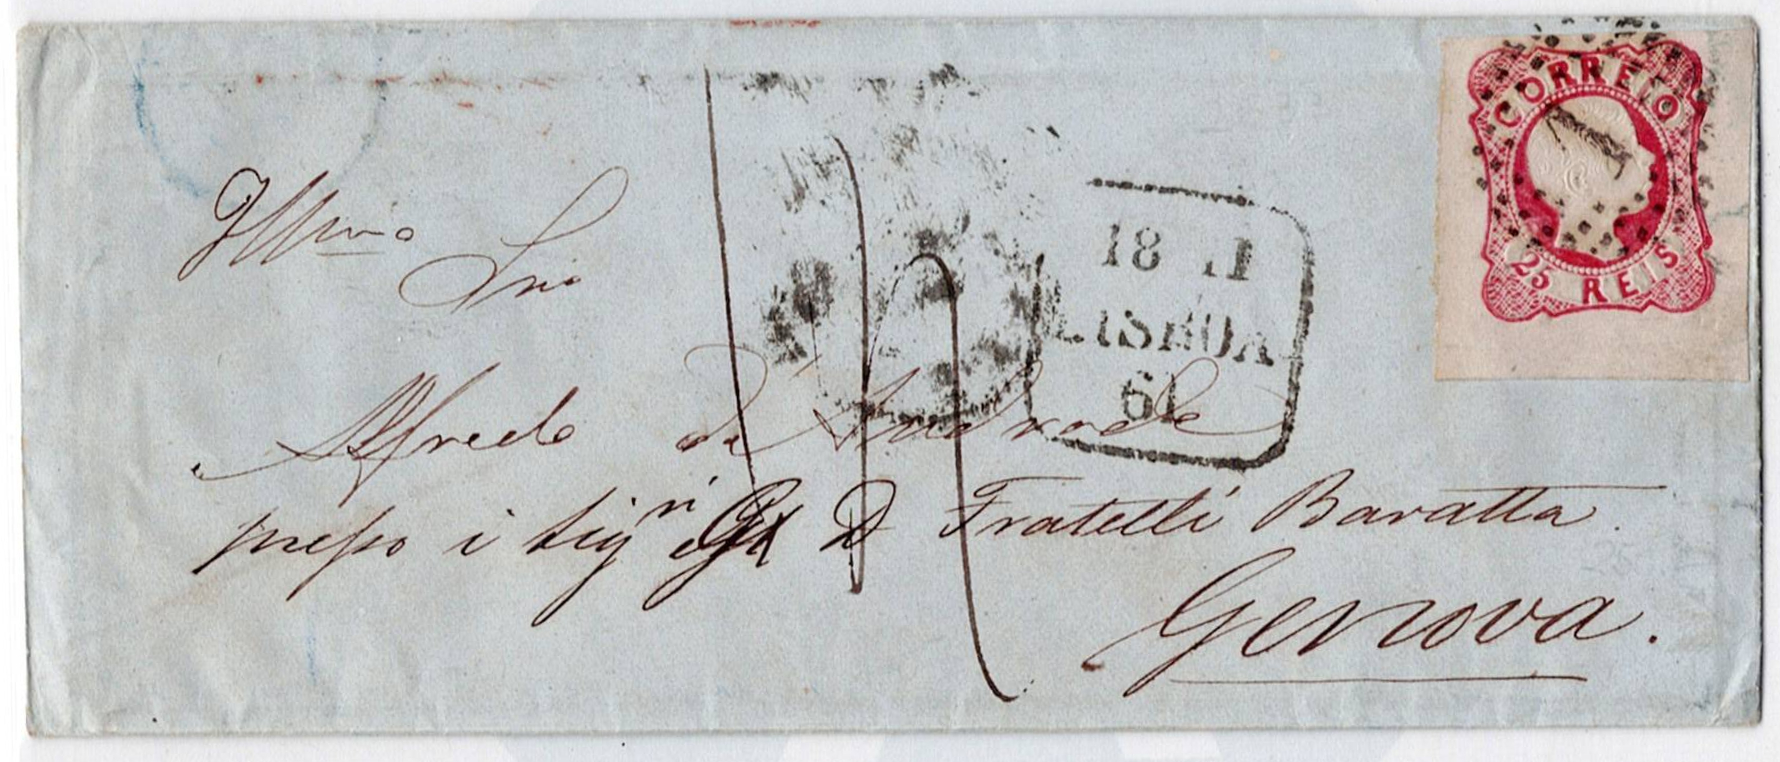 CORREIO
25 REIS
Illmo Snr
Alfredo de Andrade
presso i Sigri D Fratelli Baratta
Genova.